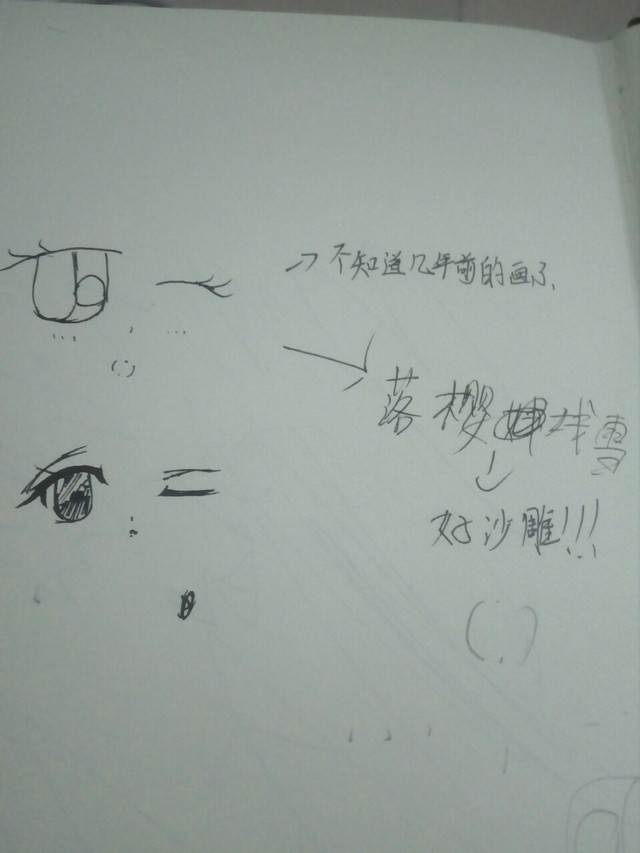 不知道几年前的画了
落樱
雪
好沙雕!!!